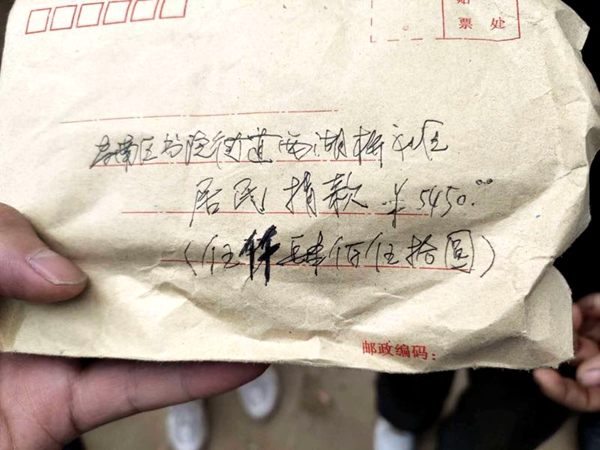 票 处
南区书院街道西湖桥社区
居民捐款 ¥5450.00
(伍仟肆佰伍拾圆)
邮政编码: